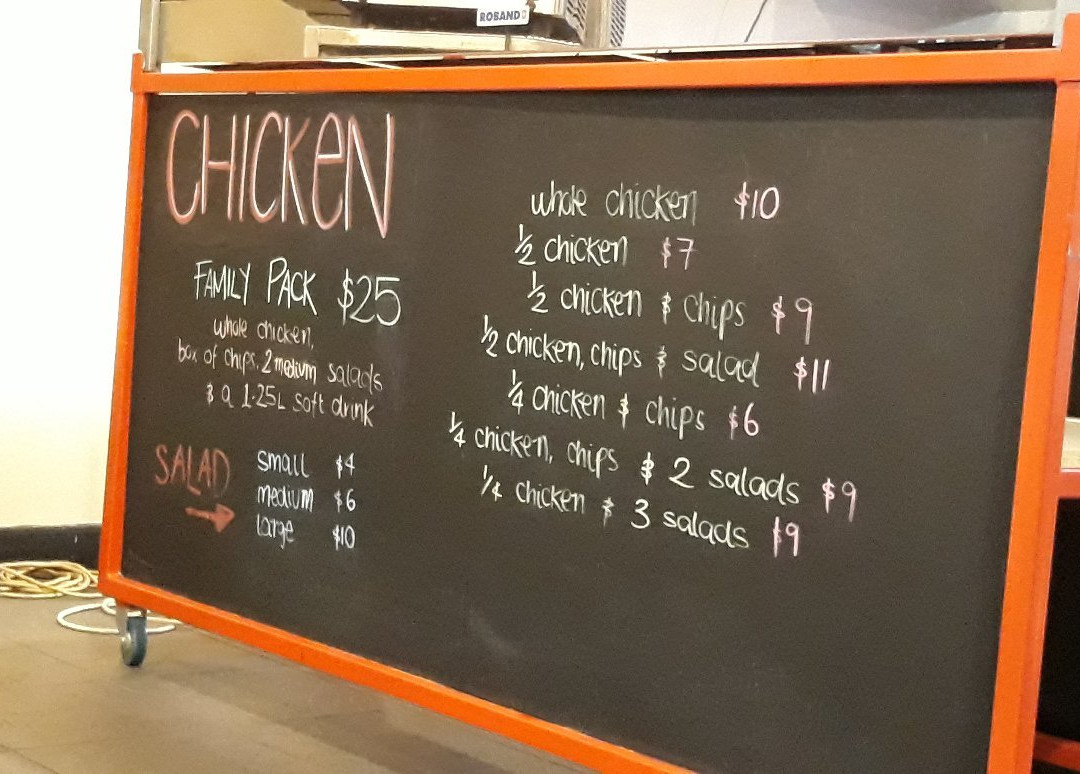 ROBAND
CHICKEN
FAMILY PACK $25
whole chicken,
box of chips, 2 medium salads
& a 1.25L soft drink
SALAD
small $4
medium $6
large $10
whole chicken $10
1/2 chicken $7
1/2 chicken & chips $9
1/2 chicken, chips & salad $11
1/4 chicken & chips $6
1/4 chicken, chips & 2 salads $9
1/4 chicken & 3 salads $9